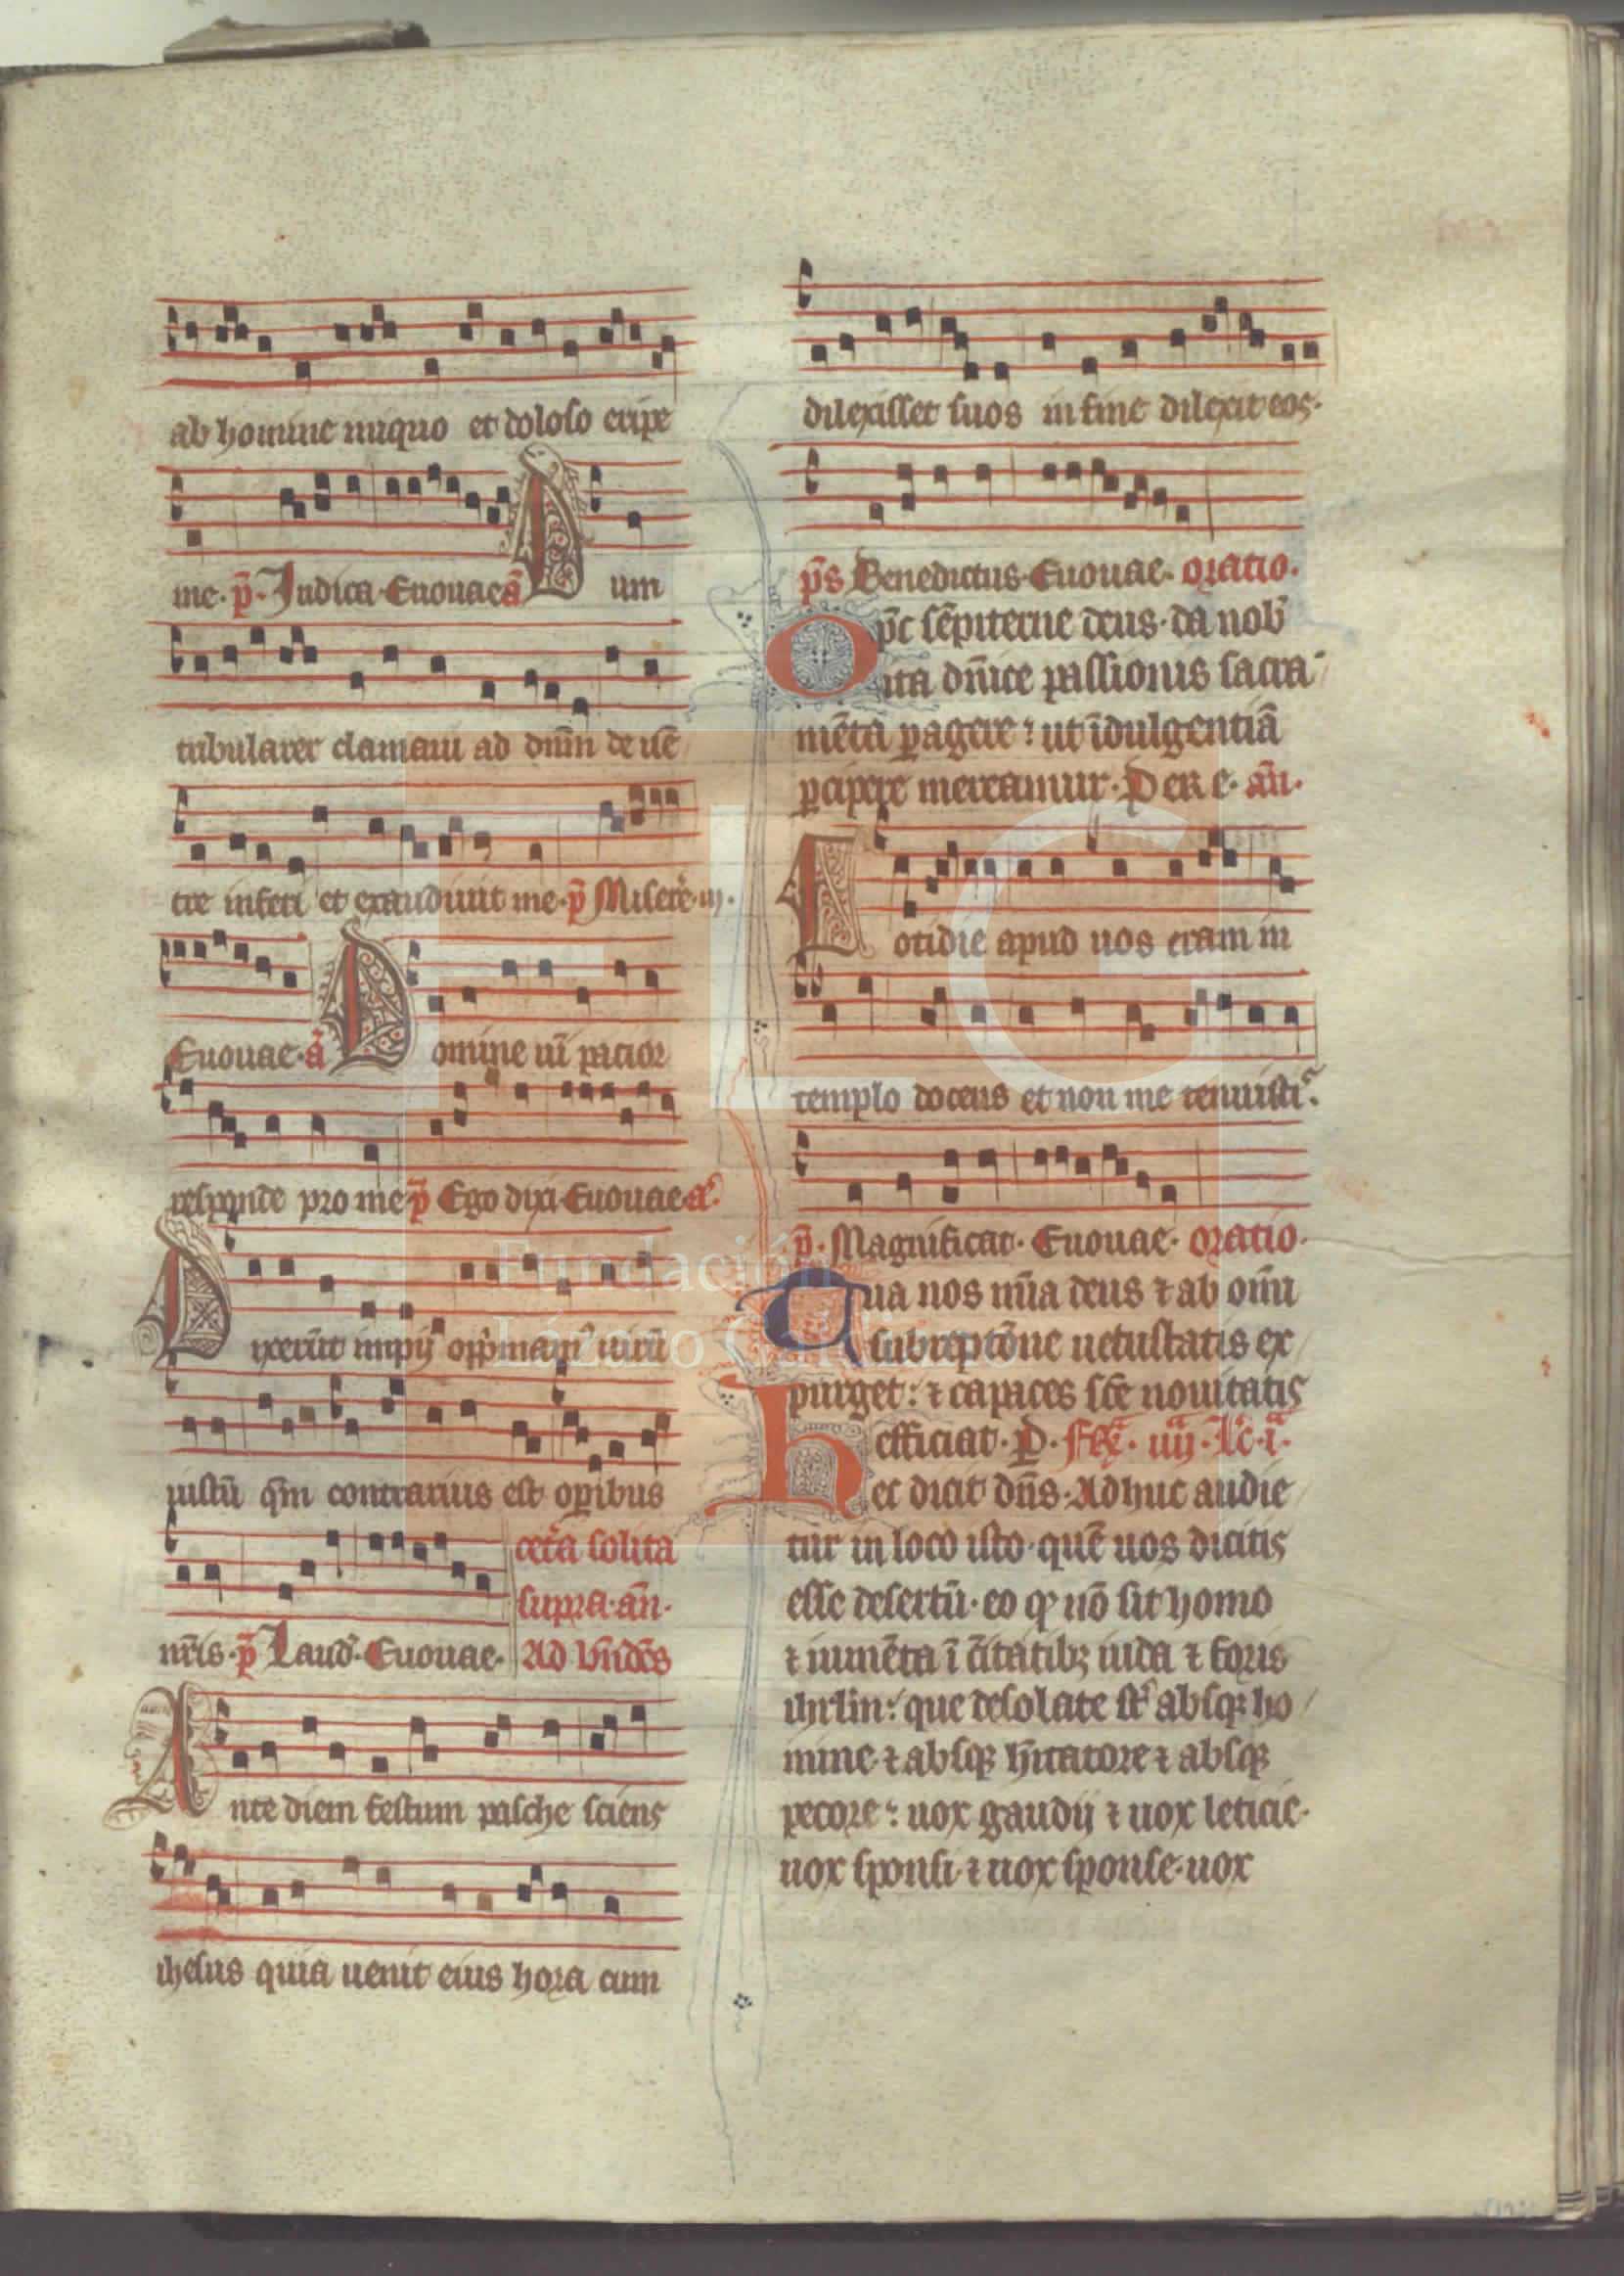 ab homine iniquo et doloso eripe
me. p̄. Iudica. Euouae ā Dum
tribularer clamaui ad dn̄m de uē
tre inferi et exaudiuit me. p̄ Miserē. iij.
Euouae. ā Domine uī pacior
responde pro me. p̄ Ego dixi. Euouae. a.
Dixerūt impij opp̄mam᷒ uirū
iustū qm̄ contrarius est op̄ibus
cet̄a solita
supra. an̄.
nr̄is. p̄ Laud. Euouae. Ad bn̄dc̄s
Ante diem festum pasche sciens
ihesus quia uenit eius hora cum
dilexisset suos in fine dilexit eos.
p̄s Benedictus. Euouae. oratio.
Op̄c sēpiterne deus. da nob̄
ita dn̄ice passionis sacra
mēta p̄agere: ut īdulgentiā
p̄cipere mereamur. Per e. an̄.
Cotidie apud uos eram in
templo docens et non me tenuisti.
p̄. Magnificat. Euouae. oratio.
Tua nos mīa deus ⁊ ab om̄i
subreptōne uetustatis ex
purget: ⁊ capaces sc̄e nouitatis
efficiat. P. Fr̄. iiij. lc̄. i.
Hec dicit dn̄s. Adhuc audie
tur in loco isto. quē uos dicitis
esse desertū. eo qꝫ nō sit homo
⁊ iumēta ī c̄itatibꝫ iuda ⁊ foris
ihrlm: que desolate st̄ absqꝫ ho
mine. ⁊ absqꝫ h̄itatore ⁊ absqꝫ
pecore: uox gaudij ⁊ uox leticie.
uox sponsi. ⁊ uox sponse. uox
FLG
Fundación
Lázaro Galdiano